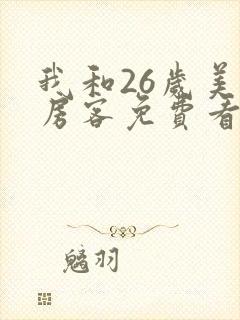 我和26歲美
房客免費看
魑羽